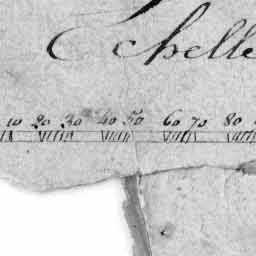 Echelle
10 20 30 40 50 60 70 80